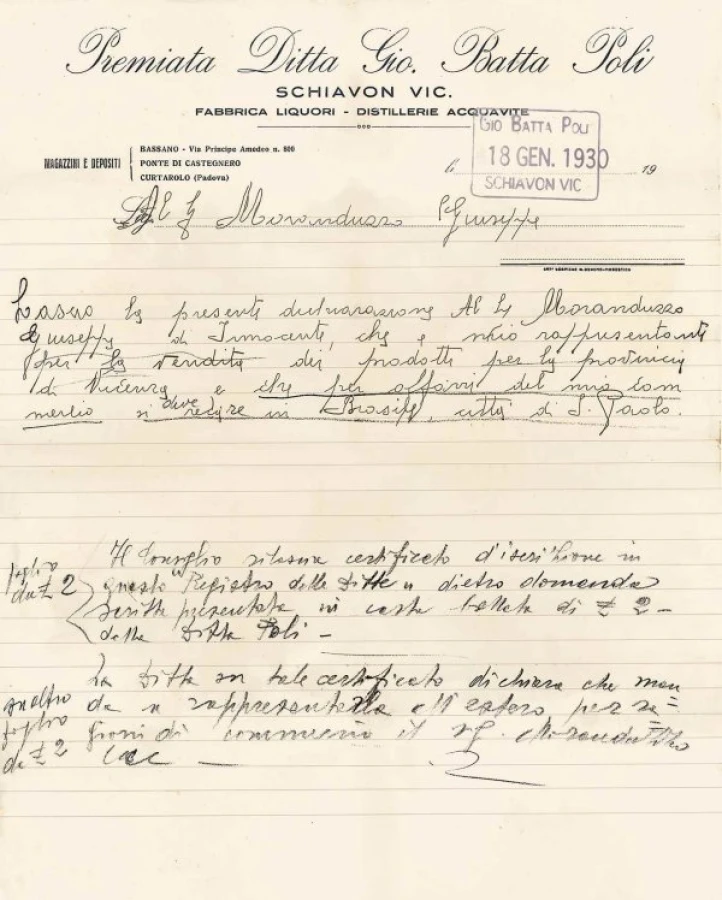 Premiata Ditta Gio. Batta Poli
SCHIAVON VIC.
FABBRICA LIQUORI - DISTILLERIE ACQUAVITE
MAGAZZINI E DEPOSITI
BASSANO - Via Principe Amedeo n. 600
PONTE DI CASTEGNERO
CURTAROLO (Padova)
GIO BATTA POLI
18 GEN. 1930
SCHIAVON VIC
li 19
Al Sg Moranduzzo Giuseppe
Lascio la presente dichiarazione Al Sg Moranduzzo
Giuseppe di Innocente, che è mio rappresentante
per la vendita dei prodotti per la provincia
di Vicenza e che per affari del mio com
mercio si deve recare in Brasile, città di S. Paolo.
Il Consiglio rilascia certificato d'iscrizione in
questo Registro delle Ditte dietro domanda
scritta presentata in carta bollata di £ 2 -
della Ditta Poli -
foglio
da £ 2
La Ditta su tale certificato dichiara che man
da a rappresentarla all'estero per ra=
gioni di commercio il sg. Moranduzzo
ecc -
inoltro
foglio
da £ 2